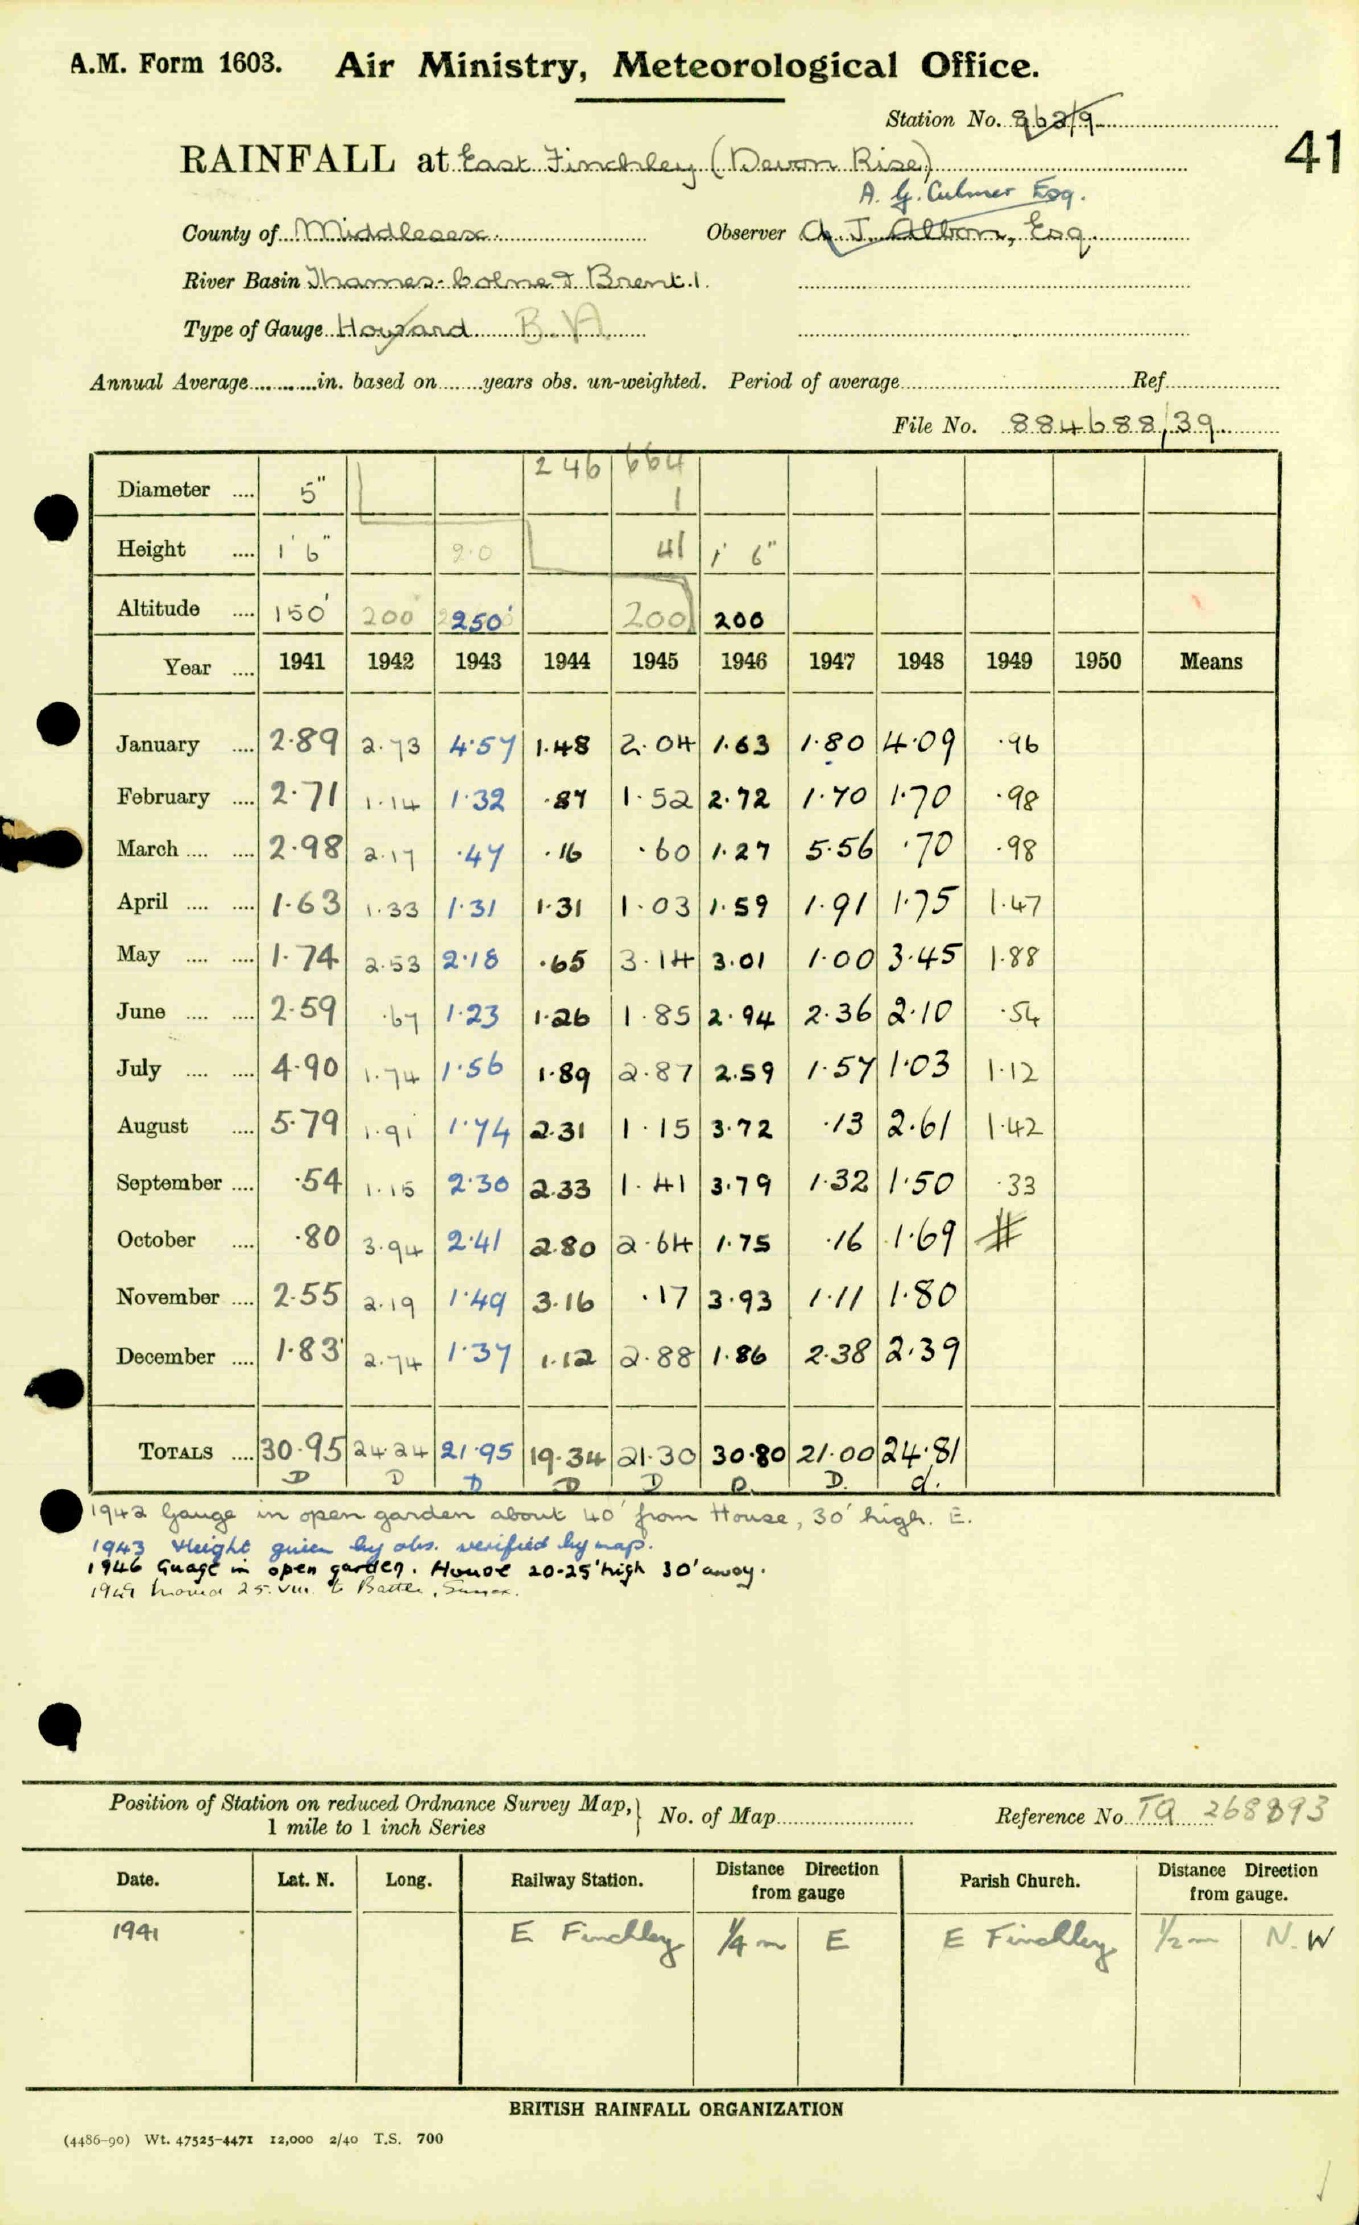 A.M. Form 1603. Air Ministry, Meteorological Office.
Station No. 963/9
41
RAINFALL at East Finchley (Devon Rise)
A. G. Culmer Esq.
County of Middlesex Observer A. J. Albon, Esq.
River Basin Thames-Colne & Brent.1.
Type of Gauge Howard B.A
Annual Average in. based on years obs. un-weighted. Period of average Ref.
File No. 884688/39
246 664
Diameter .... 5" 1
Height .... 1' 6" 2.0 41 1' 6"
Altitude .... 150' 200' 250' 200 200
Year .... 1941 1942 1943 1944 1945 1946 1947 1948 1949 1950 Means
January .... 2.89 2.73 4.57 1.48 2.04 1.63 1.80 4.09 .96
February .... 2.71 1.14 1.32 .87 1.52 2.72 1.70 1.70 .98
March .... .... 2.98 2.17 .47 .16 .60 1.27 5.56 .70 .98
April .... .... 1.63 1.33 1.31 1.31 1.03 1.59 1.91 1.75 1.47
May .... .... 1.74 2.53 2.18 .65 3.14 3.01 1.00 3.45 1.88
June .... .... 2.59 .67 1.23 1.26 1.85 2.94 2.36 2.10 .54
July .... .... 4.90 1.74 1.56 1.89 2.87 2.59 1.57 1.03 1.12
August .... 5.79 1.91 1.74 2.31 1.15 3.72 .13 2.61 1.42
September .... .54 1.15 2.30 2.33 1.41 3.79 1.32 1.50 .33
October .... .80 3.94 2.41 2.80 2.64 1.75 .16 1.69 #
November .... 2.55 2.19 1.49 3.16 .17 3.93 1.11 1.80
December .... 1.83 2.74 1.37 1.12 2.88 1.86 2.38 2.39
TOTALS .... 30.95 24.24 21.95 19.34 21.30 30.80 21.00 24.81
D D D D D D. D. d.
1942 Gauge in open garden about 40' from House, 30' high. E.
1943 Height given by obs. verified by map.
1946 Guage in open garden. House 20-25' high 30' away.
1949 Moved 25.VIII. to Battle, Sussex.
Position of Station on reduced Ordnance Survey Map,
1 mile to 1 inch Series
No. of Map
Reference No. TQ 268893
Date. Lat. N. Long. Railway Station. Distance Direction from gauge Parish Church. Distance Direction from gauge.
1941 E Finchley 1/4 m E E Finchley 1/2 m N.W
BRITISH RAINFALL ORGANIZATION
(4486-90) Wt. 47525-4471 12,000 2/40 T.S. 700